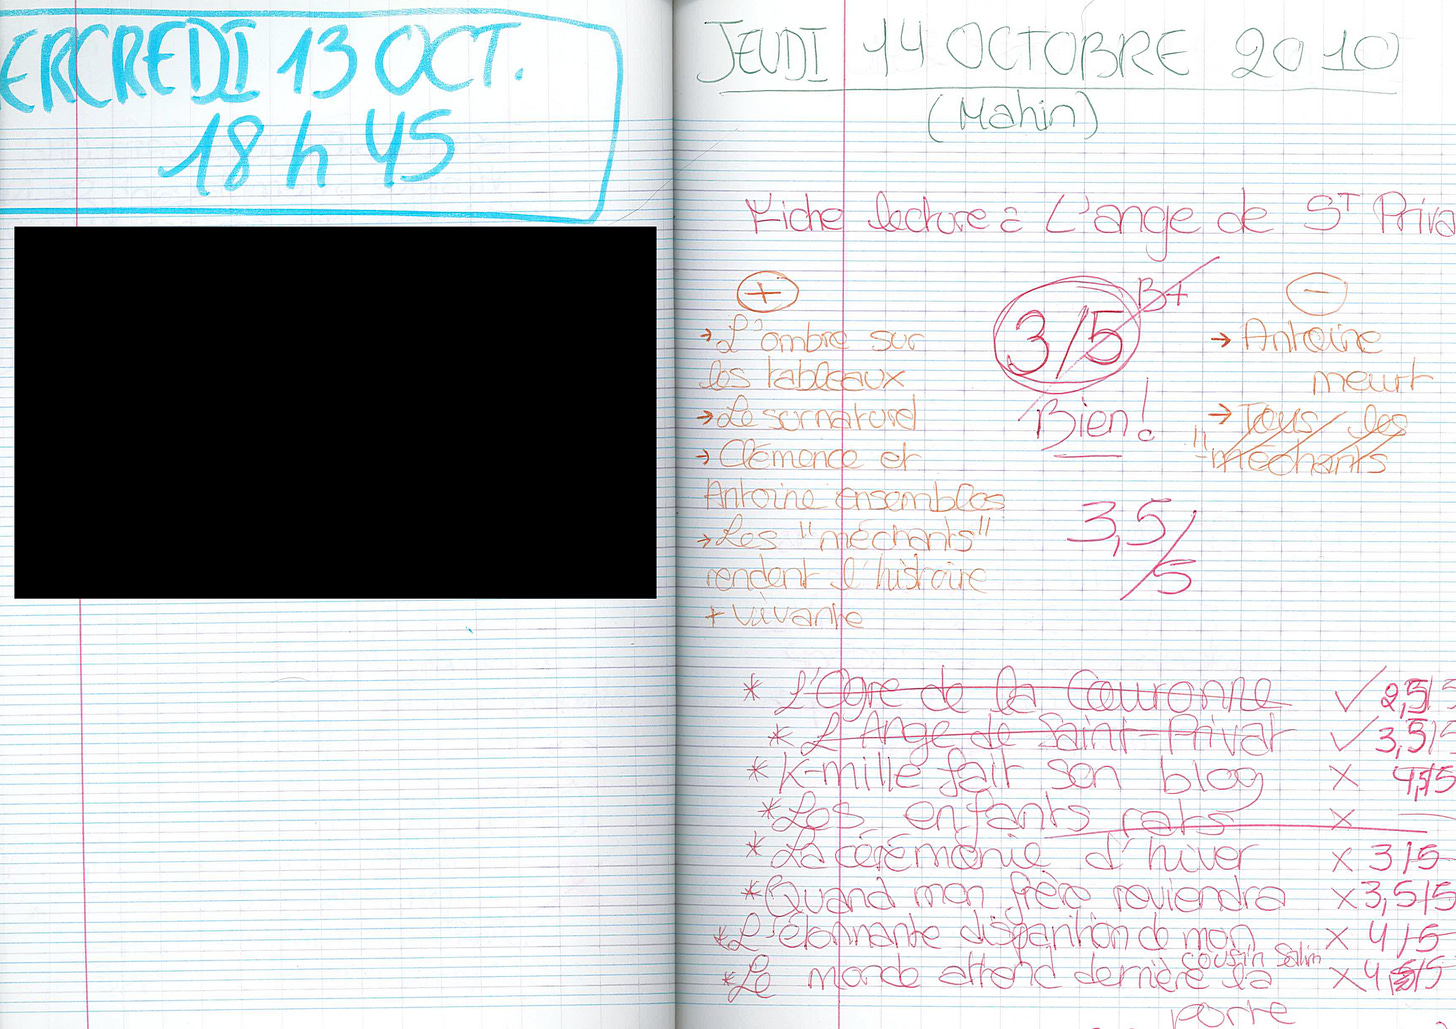 ERCREDI 13 OCT.
18 h 45
JEUDI 14 OCTOBRE 2010
(Mahin)
Fiche lecture : L'ange de ST Priva
+
-
3/5 B+
Bien !
3,5/5
→ L'ombre sur
les tableaux
→ Le surnaturel
→ Clémence et
Antoine ensembles
→ Les "méchants"
rendent l'histoire
+ vivante
→ Antoine
meurt
→ Tous les
"méchants
* L'Ogre de la Couronne ✓ 2,5/5
* L'Ange de Saint-Privat ✓ 3,5/5
* K-mille fait son blog X 4,5/5
* Les enfants rats X —
* La cérémonie d'hiver X 3/5
* Quand mon frère reviendra X 3,5/5
* L'étonnante disparition de mon X 4/5
cousin Salim
* Le monde attend derrière la X 4/5
porte